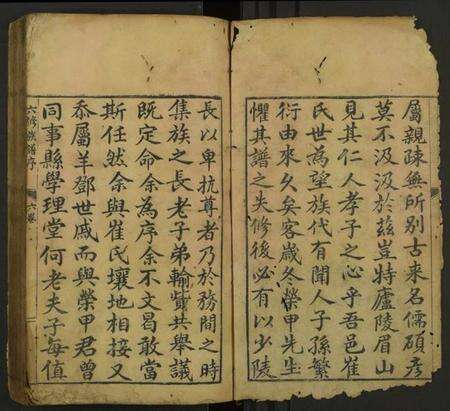 屬親疎無所别古来名儒碩彦
莫不汲汲於兹豈特廬陵眉山
見其仁人孝子之心乎吾邑崔
氏世為望族代有聞人子孫繁
衍由来久矣客歲冬榮甲先生
懼其譜之失修後必有以少陵
長以卑抗尊者乃於務間之時
集族之長老子弟輸貲共舉議
既定命余為序余不文曷敢當
斯任然余與崔氏壤地相接又
忝屬羊鄧世戚而與榮甲君曾
同事縣學理堂何老夫子每值
六修族譜序